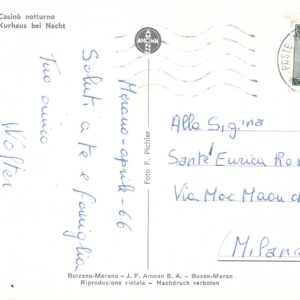 Casinò notturno
Kurhaus bei Nacht
Merano-aprile-66
Saluti a te e famiglia
Tuo amico
Wolfer
AMONN
Foto F. Pichler
POSTE
Alla Sig.ina
Santè Enrica Ros
Via Mac Maon
Milano
Bolzano-Merano – J. F. Amonn S. A. – Bozen-Meran
Riproduzione vietata – Nachdruck verboten